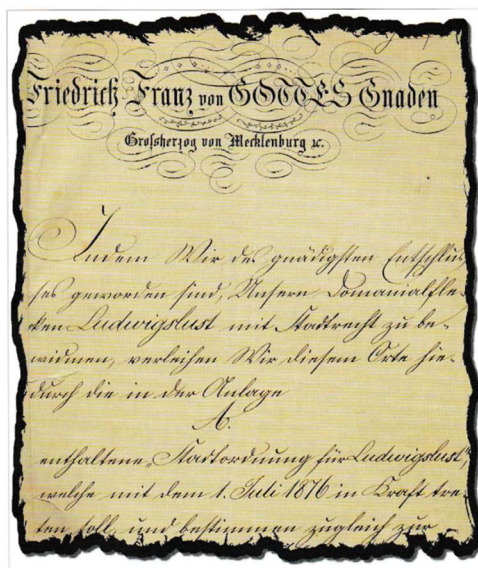 Friedrich Franz von GOTTES Gnaden
Grossherzog von Mecklenburg ꝛc.
Indem Wir des gnädigsten Entschlus-
ses geworden sind, Unsern Domanialfle-
cken Ludwigslust mit Stadtrecht zu be-
widmen, verleihen Wir diesem Orte hie-
durch die in der Anlage
A.
enthaltene „Stadtordnung für Ludwigslust",
welche mit dem 1. Juli 1876 in Kraft tre-
ten soll, und bestimmen zugleich zur